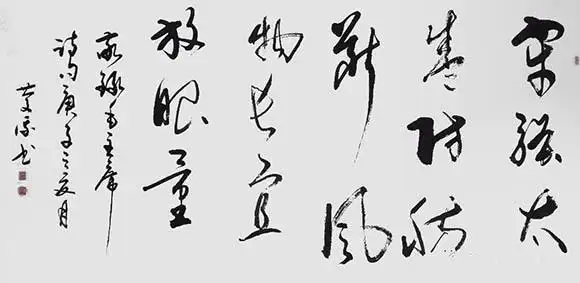 牢骚太
盛防肠
断风
物长宜
放眼量
敬录毛主席
诗句庚子之夏月
书